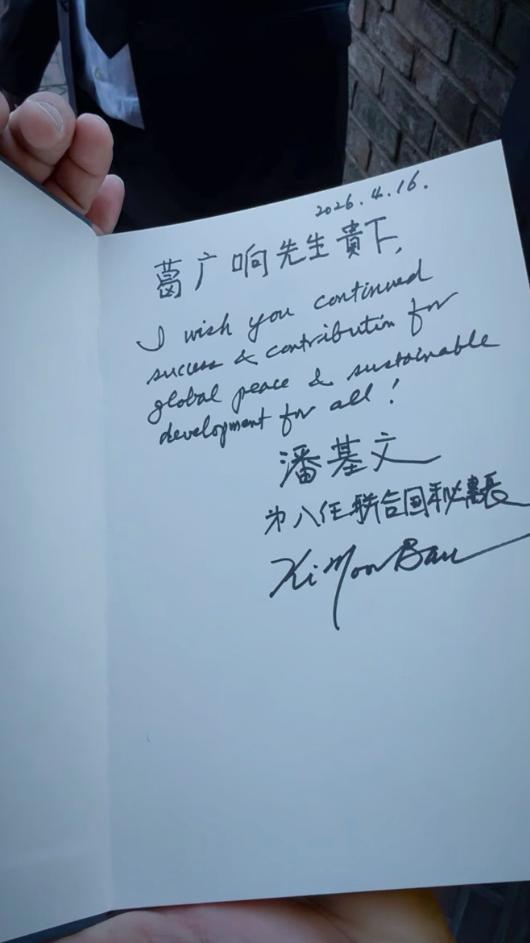 2026.4.16.
葛广响先生貴下,
I wish you continued
success & contribution for
global peace & sustainable
development for all!
潘基文
第八任联合国秘書長
Ki Moon Ban